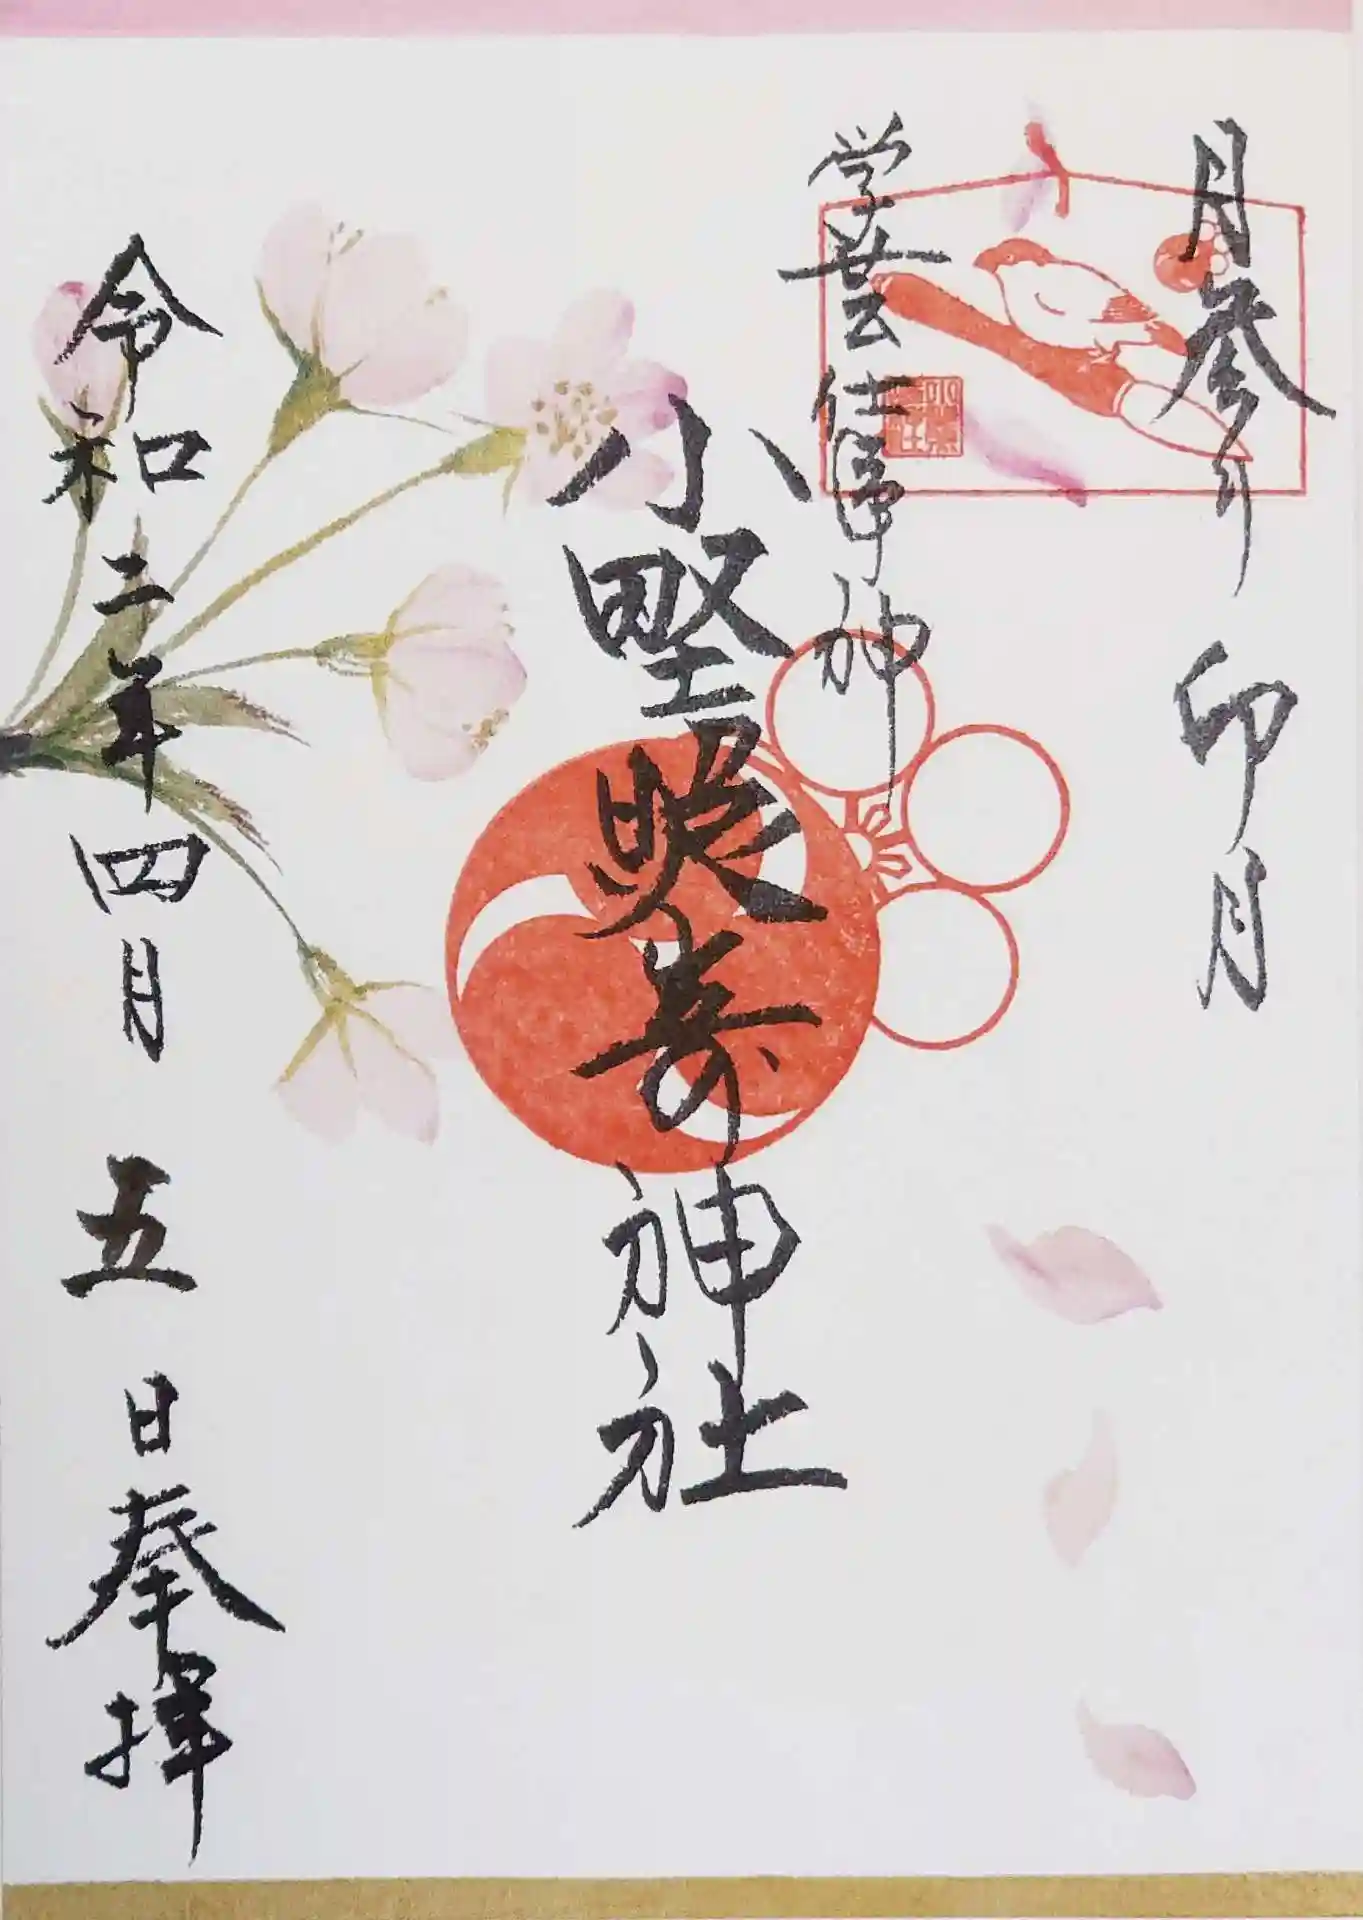 月参り 卯月
学芸仕事神
小野照崎神社
令和二年四月五日奉拝